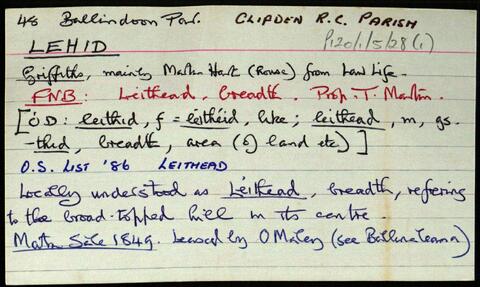 48 Ballindoon Par. CLIFDEN R.C. PARISH
P120/1/5/28(1)
LEHID
Griffiths, mainly Martin Hart (house) from Law Life.
FNB: Leithead, breadth. Prop. T. Martin.
[ÓD: leithid, f = leithéid, like; leithead, m, gs.
-thid, breadth, area (of land etc)]
O.S. LIST '86 LEITHEAD
Locally understood as Leithead, breadth, referring
to the broad-topped hill in its centre.
Martin Sale 1849. Leased by O Maley (see Ballinaleama)